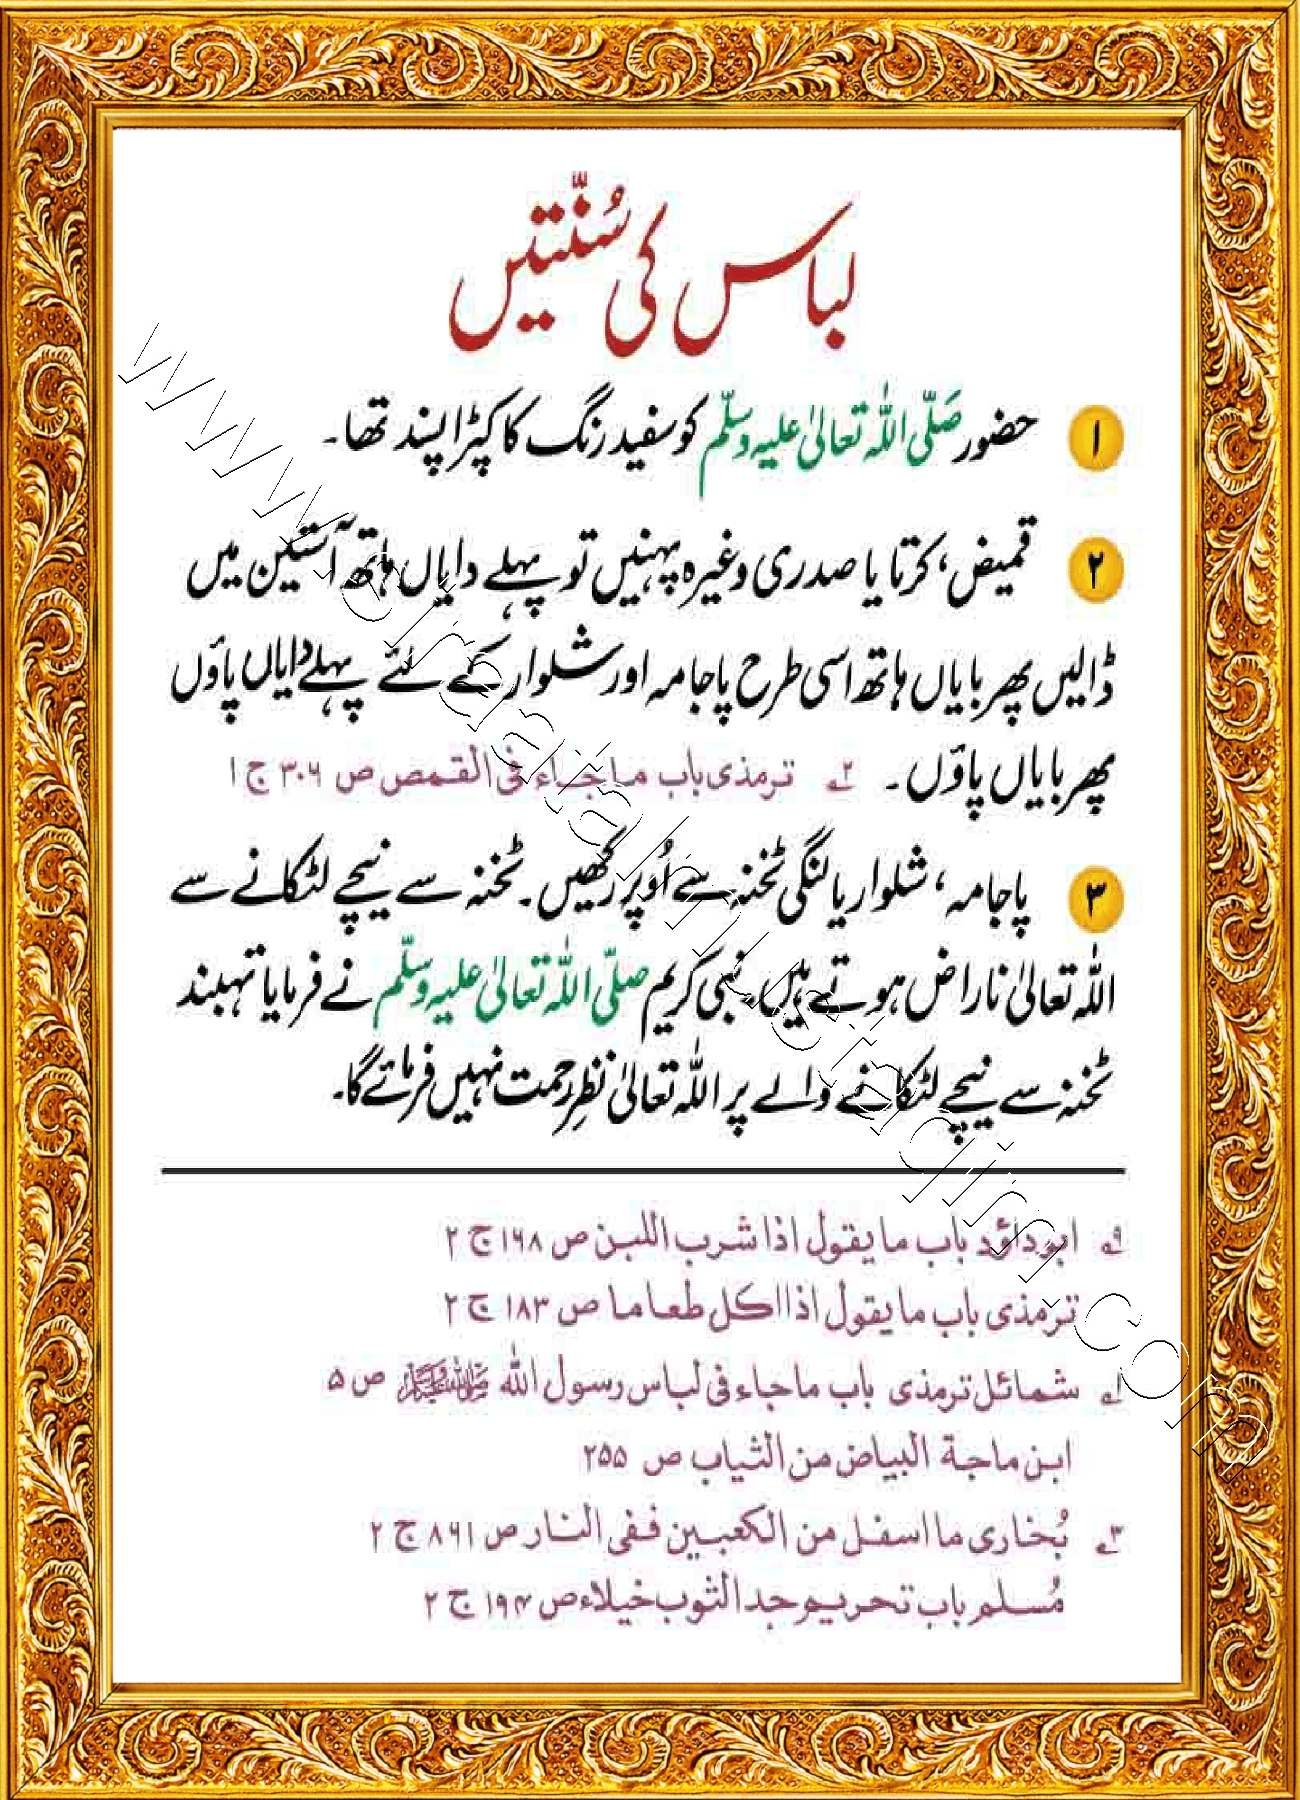 لباس کی سُنّتیں
۱ حضور صَلّی اللہ تعالیٰ علیہ وسلّم کو سفید رنگ کا کپڑا پسند تھا۔
۲ قمیض، کرتا یا صدری وغیرہ پہنیں تو پہلے دایاں ہاتھ آستین میں
ڈالیں پھر بایاں ہاتھ اسی طرح پاجامہ اور شلوار کے لئے پہلے دایاں پاؤں
پھر بایاں پاؤں۔ ۲؎ ترمذی باب ماجاء فی القمص ص ۳۰۶ ج ۱
۳ پاجامہ، شلوار یا لنگی ٹخنہ سے اُوپر رکھیں۔ ٹخنہ سے نیچے لٹکانے سے
اللہ تعالیٰ ناراض ہوتے ہیں۔ نبی کریم صلّی اللہ تعالیٰ علیہ وسلّم نے فرمایا تہبند
ٹخنہ سے نیچے لٹکانے والے پر اللہ تعالیٰ نظرِ رحمت نہیں فرمائے گا۔
۹؎ ابوداؤد باب مایقول اذا شرب اللبن ص ۱۶۸ ج ۲
ترمذی باب مایقول اذا اکل طعاما ص ۱۸۳ ج ۲
۱؎ شمائل ترمذی باب ماجاء فی لباس رسول اللہ ﷺ ص ۵
ابن ماجة البیاض من الثیاب ص ۲۵۵
۳؎ بُخاری ما اسفل من الکعبین ففی النار ص ۸۶۱ ج ۲
مُسلم باب تحریم جد الثوب خیلاء ص ۱۹۴ ج ۲
www.siraatalmustaqim.com